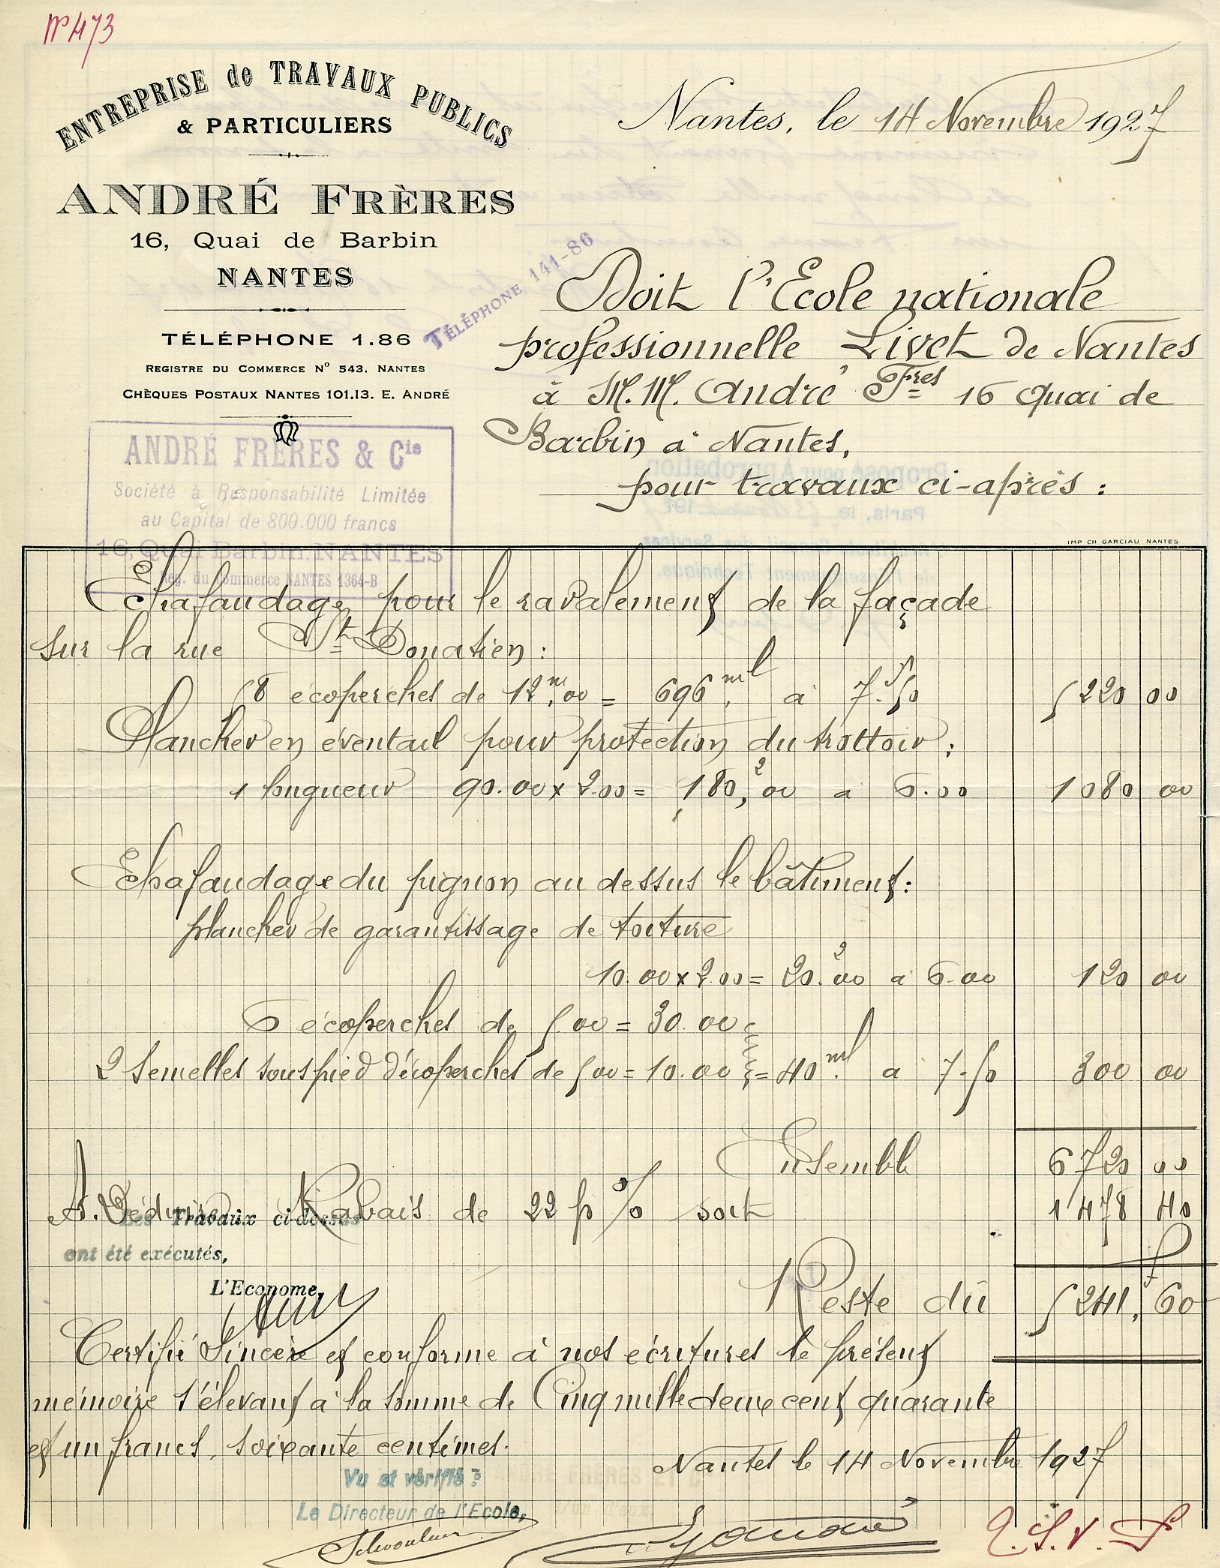 N° 473
ENTREPRISE de TRAVAUX PUBLICS
& PARTICULIERS
ANDRÉ FRÈRES
16, Quai de Barbin
NANTES
TÉLÉPHONE 1.86
TÉLÉPHONE 141-86
REGISTRE DU COMMERCE N° 543, NANTES
CHÈQUES POSTAUX NANTES 101.13. E. ANDRÉ
ANDRÉ FRÈRES & Cie
Société à Responsabilité Limitée
au Capital de 800.000 francs
16, Quai Barbin, NANTES
Reg. du Commerce NANTES 1364-B
Nantes, le 14 Novembre 1927
Doit l'Ecole nationale
professionnelle Livet de Nantes
à M.M. André Fres 16 Quai de
Barbin à Nantes,
pour travaux ci-après :
IMP CH GARCIAU NANTES
Echafaudage pour le ravalement de la façade
sur la rue St Donatien :
58 écoperches de 12m,00 = 696,ml à 7f.50 5220 00
Plancher en éventail pour protection du trottoir :
1 longueur 90.00 x 2.00 = 180,2 00 à 6.00 1080 00
Echafaudage du pignon au dessus le bâtiment :
plancher de garantissage de toiture
10.00 x 2.00 = 20.2 00 à 6.00 120 00
6 écoperches de 5 00 = 30.00
2 Semelles sous pied d'écoperches de 5 00 = 10.00 = 40ml. à 7.50 300 00
Ensemble 6720 00
A. Déduire. Rabais de 22 p % soit 1478 40
Les Travaux ci-dessus
ont été exécutés,
L'Econome,
Reste dû 5241,f 60
Certifié Sincère et conforme à nos écritures le présent
mémoire s'élevant à la somme de Cinq mille deux cent quarante
et un francs, soixante centimes.
Nantes le 14 Novembre 1927
Vu et vérifié :
Le Directeur de l'Ecole,